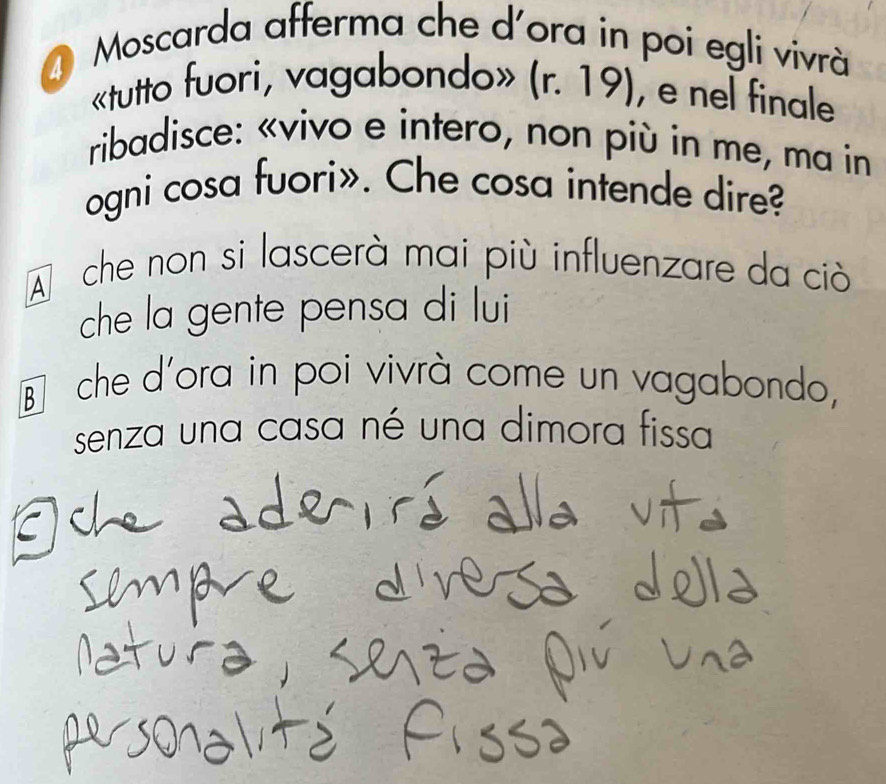 4 Moscarda afferma che d'ora in poi egli vivrà
«tutto fuori, vagabondo» (r. 19), e nel finale
ribadisce: «vivo e intero, non più in me, ma in
ogni cosa fuori». Che cosa intende dire?
A che non si lascerà mai più influenzare da ciò
che la gente pensa di lui
B che d'ora in poi vivrà come un vagabondo,
senza una casa né una dimora fissa
C che aderirá alla vita
sempre diversa della
natura, senza piú una
personalitá fissa